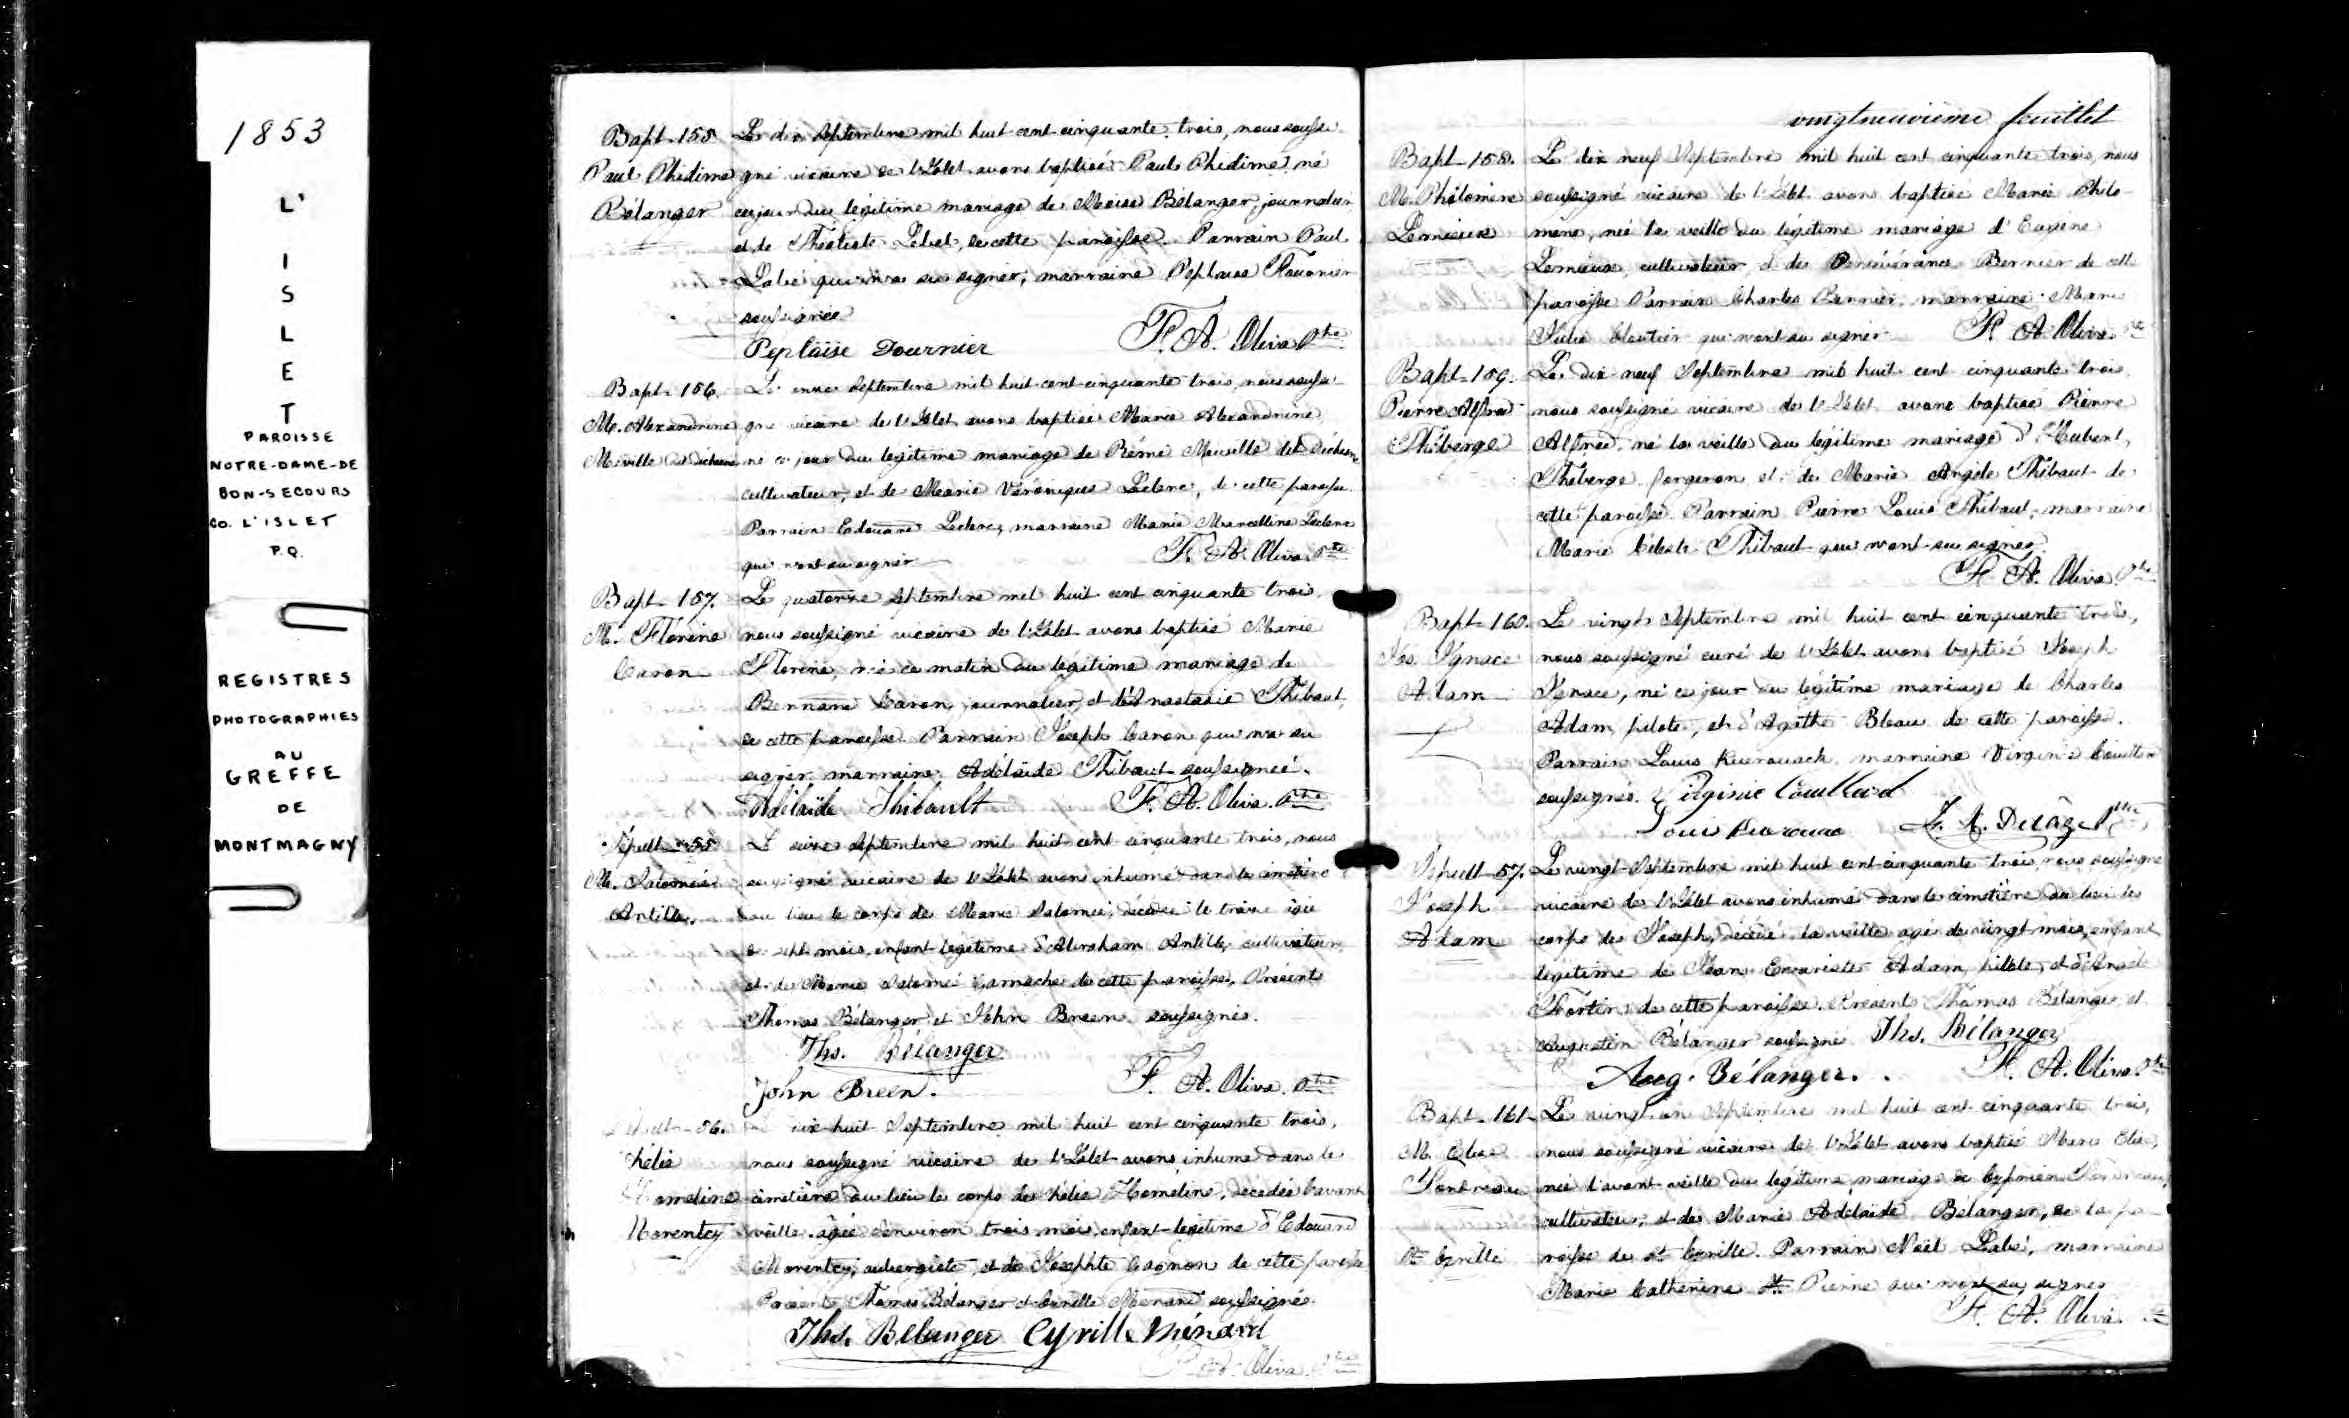 1853
L'
I
S
L
E
T
PAROISSE
NOTRE-DAME-DE
BON-SECOURS
CO. L'ISLET
P.Q.
REGISTRES
PHOTOGRAPHIES
AU
GREFFE
DE
MONTMAGNY
Bapt-155.
Paul Phidime
Bélanger
Le dix Septembre mil huit cent cinquante trois, nous soussi-
gné vicaire de l'Islet avons baptisé Paul Phidime, né
ce jour du légitime mariage de Moïse Bélanger, journalier
et de Théotiste Lebel, de cette paroisse. Parrain Paul
Labé qui n'a su signer, marraine Peplaise Fournier
soussignée
Peplaise Fournier F. A. Oliva Ptre
Bapt-156.
M. Alexandrine
Miville dit Dechene
Le onze Septembre mil huit cent cinquante trois, nous soussi-
gné vicaire de l'Islet avons baptisé Marie Alexandrine
né ce jour du légitime mariage de Rémi Miville dit Dechene
cultivateur, et de Marie Véronique Leclerc, de cette paroisse.
Parrain Edouard Leclerc, marraine Marie Marcelline Leclerc
qui n'ont su signer F. A. Oliva Ptre
Bapt-157.
M. Florine
Caron
Le quatorze Septembre mil huit cent cinquante trois,
nous soussigné vicaire de l'Islet avons baptisé Marie
Florine, né ce matin du légitime mariage de
Bernard Caron, journalier, et d'Anastasie Thibaut,
de cette paroisse. Parrain Joseph Caron qui n'a su
signer marraine Adélaïde Thibaut soussignée.
Adélaïde Thibault F. A. Oliva. Ptre
Sépult-55
M. Salomée
Antille.
Le seize Septembre mil huit cent cinquante trois, nous
soussigné vicaire de l'Islet avons inhumé dans le cimetière
du lieu le corps de Marie Salomée, décédée le treize
de sept mois, enfant légitime d'Abraham Antille, cultivateur,
et de Marie Salomé Gamache de cette paroisse. Présents
Thomas Bélanger et John Breen soussignés.
Ths. Bélanger
John Breen. F. A. Oliva. Ptre
Sépult-56.
Hameline
Morency
dix-huit Septembre mil huit cent cinquante trois,
nous soussigné vicaire de l'Islet avons inhumé dans le
cimetière du lieu le corps de Hameline, décédée l'avant
veille, âgée d'environ trois mois, enfant légitime d'Edouard
Morency, aubergiste, et de Josephte Gagnon de cette paroisse
Présents Thomas Bélanger et Cyrille Ménard soussignés.
Ths. Bélanger Cyrille Ménard
F. A. Oliva. Ptre
vingtneuvième feuillet
Bapt-158.
M. Philomène
Lemieux
Le dix neuf Septembre mil huit cent cinquante trois, nous
soussigné vicaire de l'Islet avons baptisé Marie Philo-
mène, née la veille du légitime mariage d'Eugène
Lemieux, cultivateur et de Persévérance Bernier de cette
paroisse Parrain Charles Bernier, marraine Marie
Julie Cloutier qui n'ont su signer F. A. Oliva Ptre
Bapt-159.
Pierre Alfred
Théberge
Le dix neuf Septembre mil huit cent cinquante trois
nous soussigné vicaire de l'Islet avons baptisé Pierre
Alfred, né la veille du légitime mariage d'Hubert,
Théberge, forgeron et de Marie Angèle Thibaut de
cette paroisse. Parrain Pierre Louis Thibaut, marraine
Marie Céleste Thibaut qui n'ont su signer.
F. A. Oliva Ptre
Bapt-160.
Jos. Ignace
Adam
Le vingt Septembre mil huit cent cinquante trois,
nous soussigné curé de l'Islet avons baptisé Joseph
Ignace, né ce jour du légitime mariage de Charles
Adam, pilote, et d'Agathe Bleau de cette paroisse.
Parrain Louis Kuerouack, marraine Virginie Couillard
soussignés. Virginie Couillard
Louis F. A. Delâge Ptre
Sépult-57.
Joseph
Adam
Le vingt Septembre mil huit cent cinquante trois, nous soussigné
vicaire de l'Islet avons inhumé dans le cimetière du lieu le
corps de Joseph, décédé la veille agé de vingt mois, enfant
légitime de Jean Evariste Adam, pilote, et d'Angèle
Fortin de cette paroisse. Présents Thomas Bélanger et
Augustin Bélanger soussigné Ths. Bélanger
Aug. Bélanger. F. A. Oliva. Ptre
Bapt-161-
M. Elise
St Cyrille
Le vingt-un Septembre mil huit cent cinquante trois,
nous soussigné vicaire de l'Islet avons baptisé Marie Elise,
née l'avant-veille du légitime mariage de Cyprien
cultivateur, et de Marie Adélaïde Bélanger, de la pa-
roisse de St Cyrille. Parrain Noël Labé, marraine
Marie Catherine St Pierre qui n'ont su signer
F. A. Oliva. Ptre